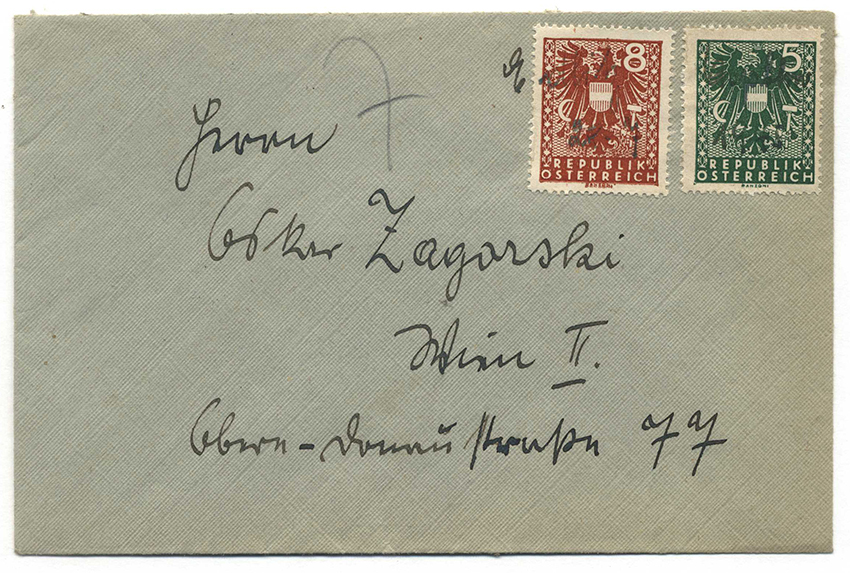 8
5
G T
G T
REPUBLIK
ÖSTERREICH
REPUBLIK
ÖSTERREICH
Herrn
Oskar Zagorski
Wien II.
Obere-Donaustraße 77